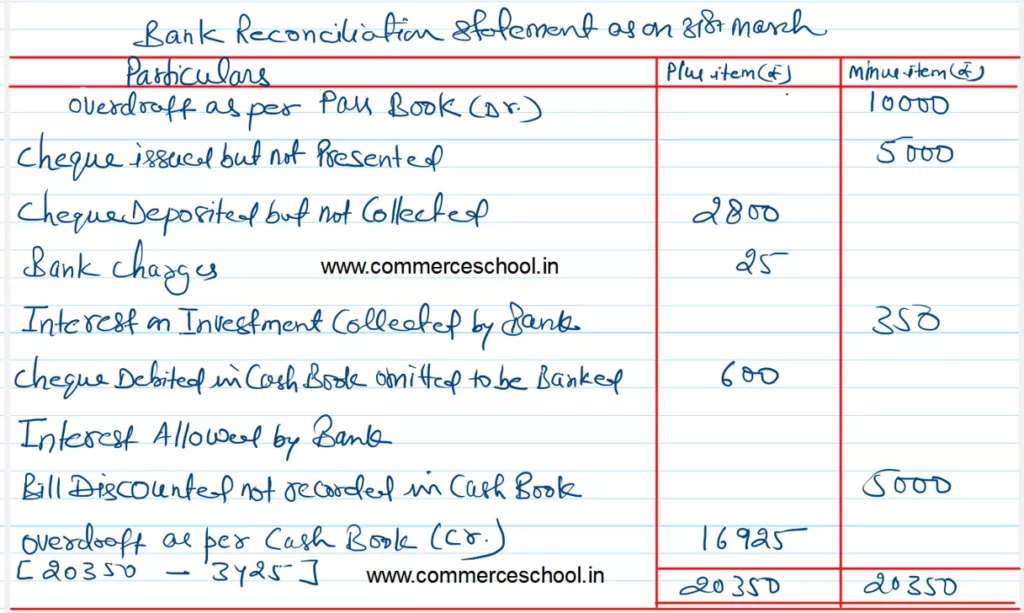 Bank Reconciliation Statement as on 31st March
Particulars Plus item (₹) Minus item (₹)
Overdraft as per Pass Book (Dr.) 10000
Cheque issued but not Presented 5000
Cheque Deposited but not Collected 2800
Bank Charges www.commerceschool.in 25
Interest on Investment Collected by Bank 350
Cheque Debited in Cash Book omitted to be Banked 600
Interest Allowed by Bank
Bill Discounted not recorded in Cash Book 5000
Overdraft as per Cash Book (Cr.) 16925
[20350 - 3425] www.commerceschool.in 20350 20350